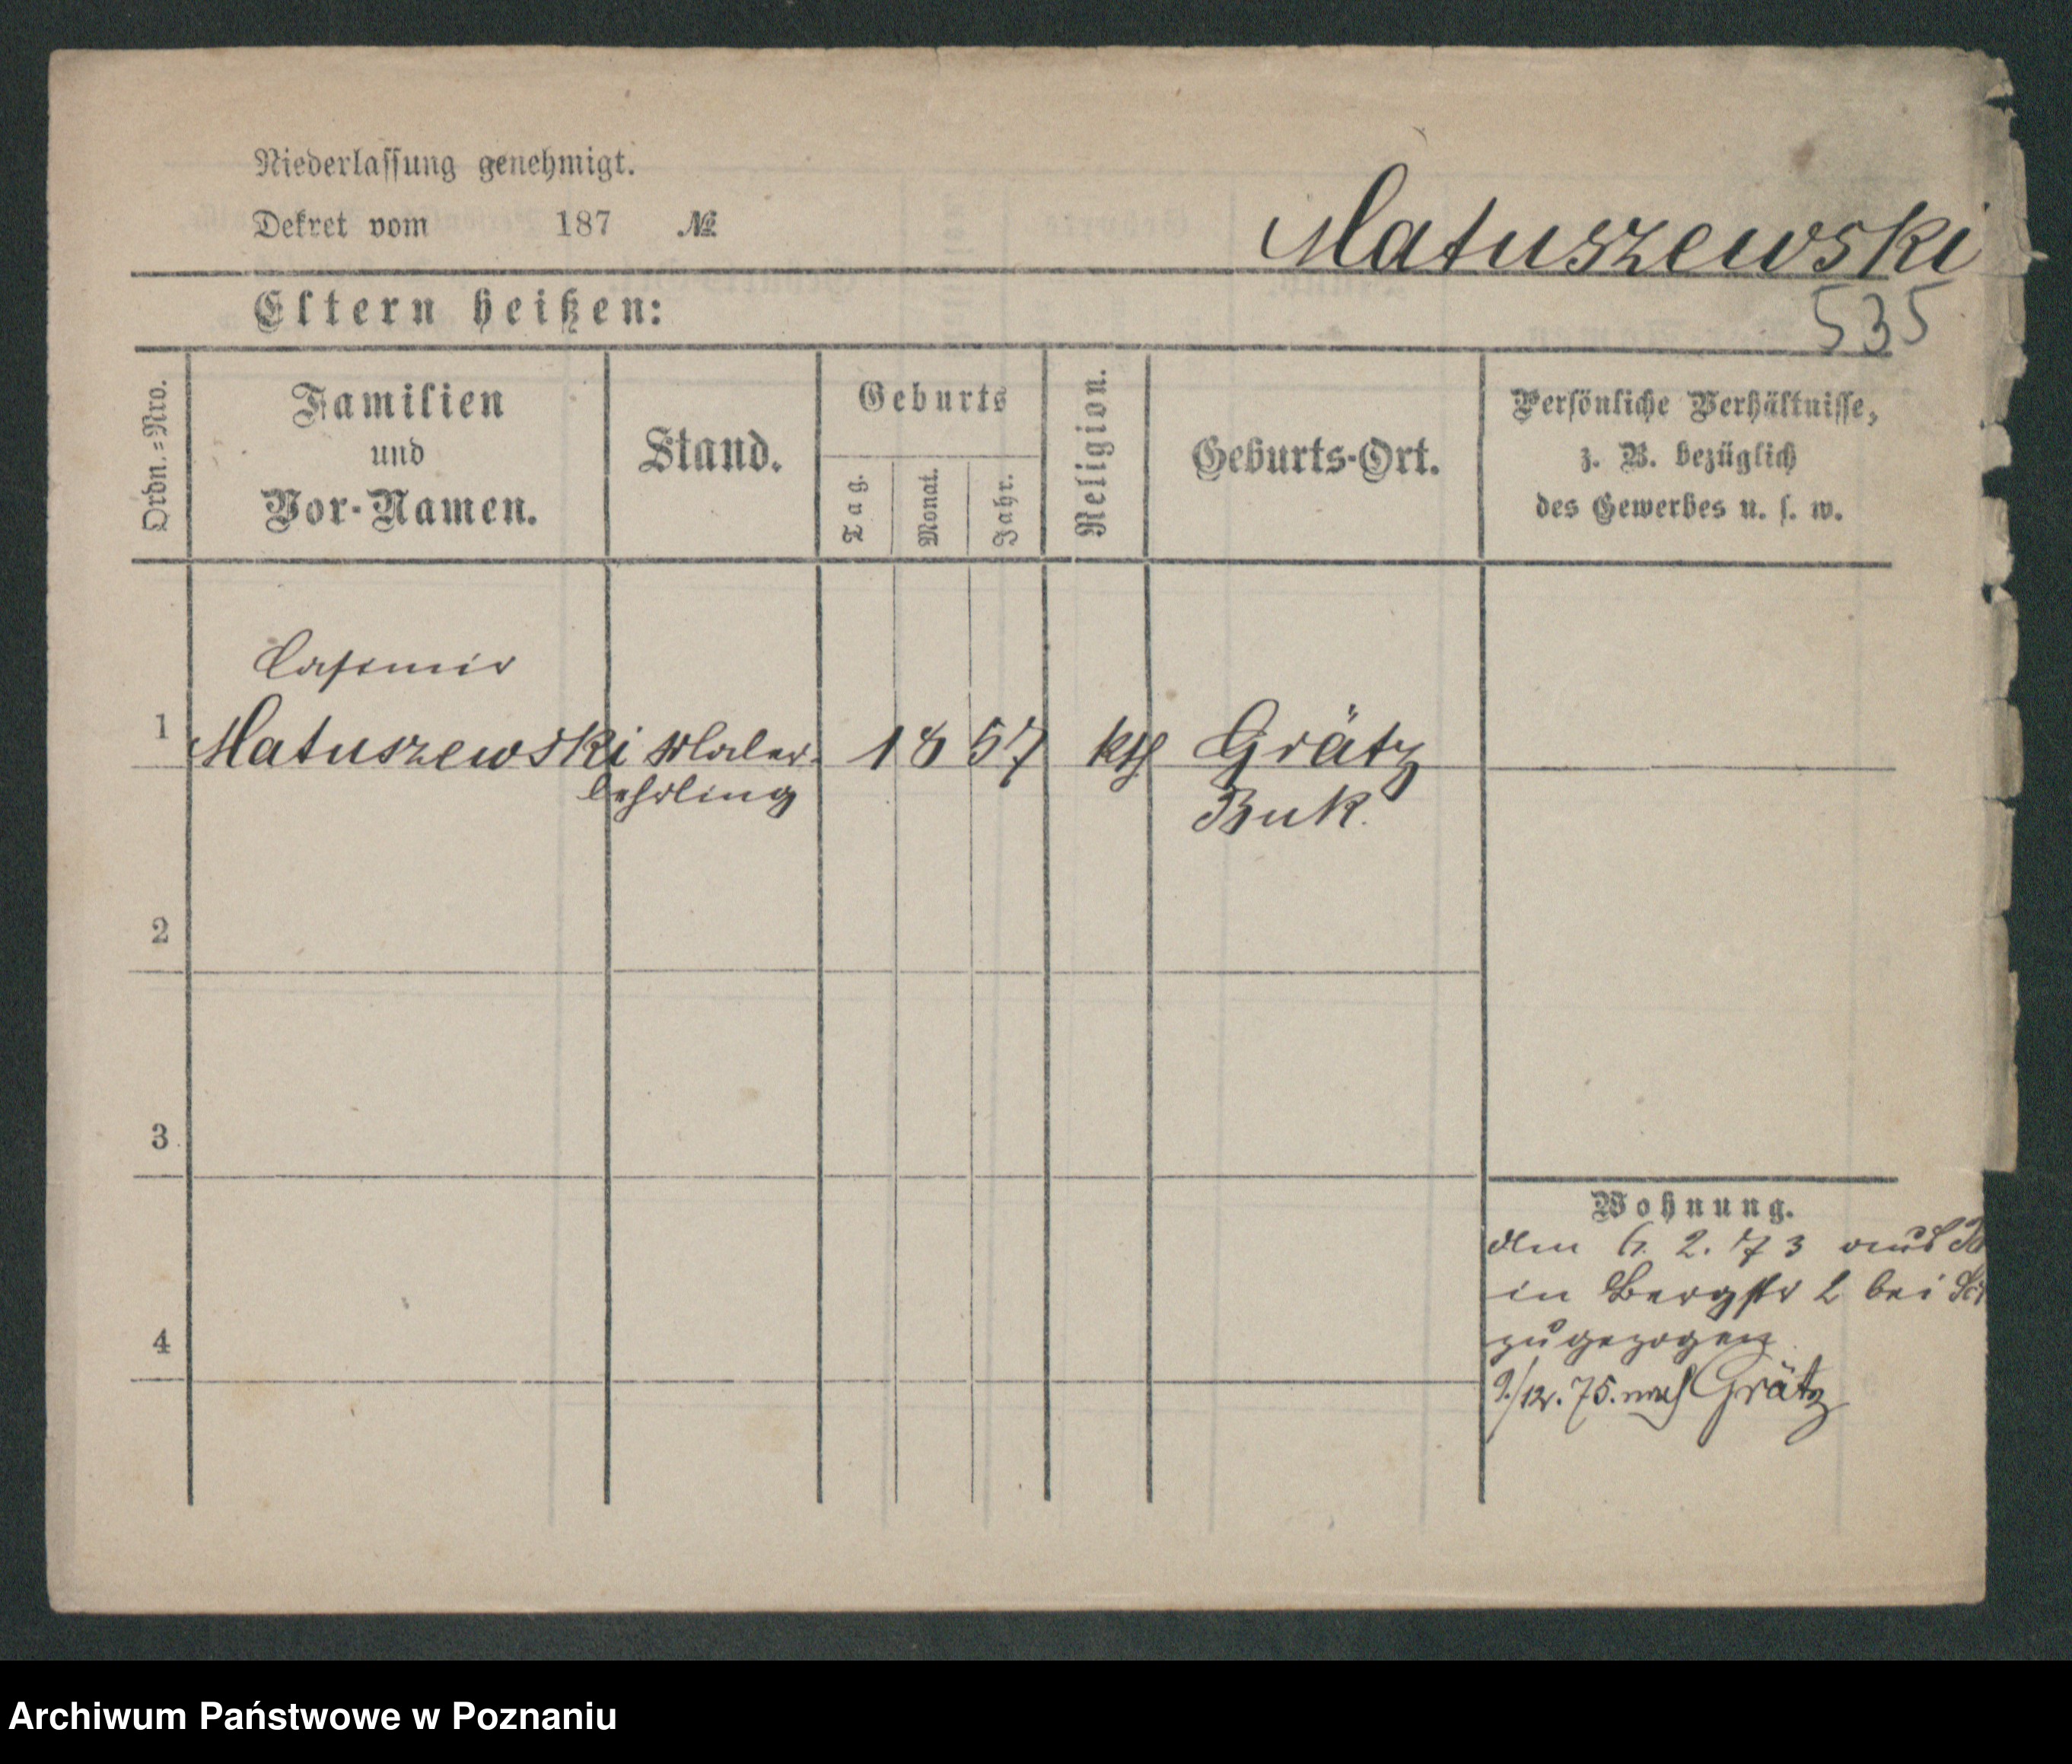 Niederlassung genehmigt.
Dekret vom 187 №
Matuszewski
Eltern heißen:
535
Ordn.-Nro.
Familien
und
Vor-Namen.
Stand.
Geburts
Tag.
Monat.
Jahr.
Religion.
Geburts-Ort.
Persönliche Verhältnisse,
z. B. bezüglich
des Gewerbes u. s. w.
Casimir
1 Matuszewski Maler- 1857 kth Grätz
lehrling Buk.
2
3
Wohnung.
den 6. 2. 73 aus
in Bergstr 2 bei
zugezogen
4
9./12. 75. nach Grätz
Archiwum Państwowe w Poznaniu